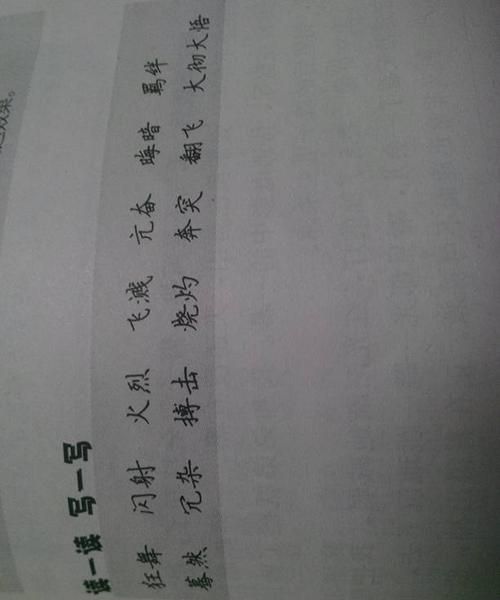 读一读 写一写
狂舞 闪射 火烈 飞溅 亢奋 晦暗 羁绊
蓦然 冗杂 搏击 烧灼 奔突 翻飞 大彻大悟
效果。